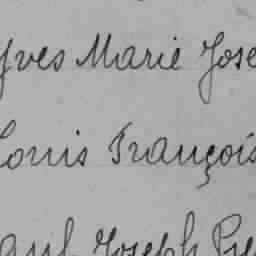 Yves Marie Jose
Louis François
aul Joseph Pie